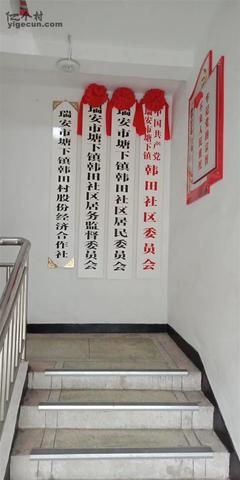 亿个村
yigecun.com
中国共产党
瑞安市塘下镇
韩田社区委员会
瑞安市塘下镇韩田社区居民委员会
瑞安市塘下镇韩田社区居务监督委员会
瑞安市塘下镇韩田村股份经济合作社